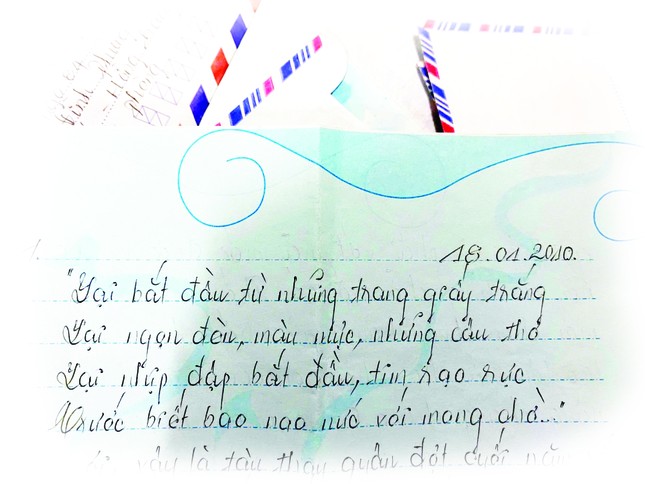 18.01.2010.
"Lại bắt đầu từ những trang giấy trắng
Lại ngọn đèn, màu mực, những câu thơ
Lại nhịp đập bắt đầu, tim rạo rực
Trước biết bao nao nức với mong chờ..."
vậy là tàu thay quân đợt cuối năm